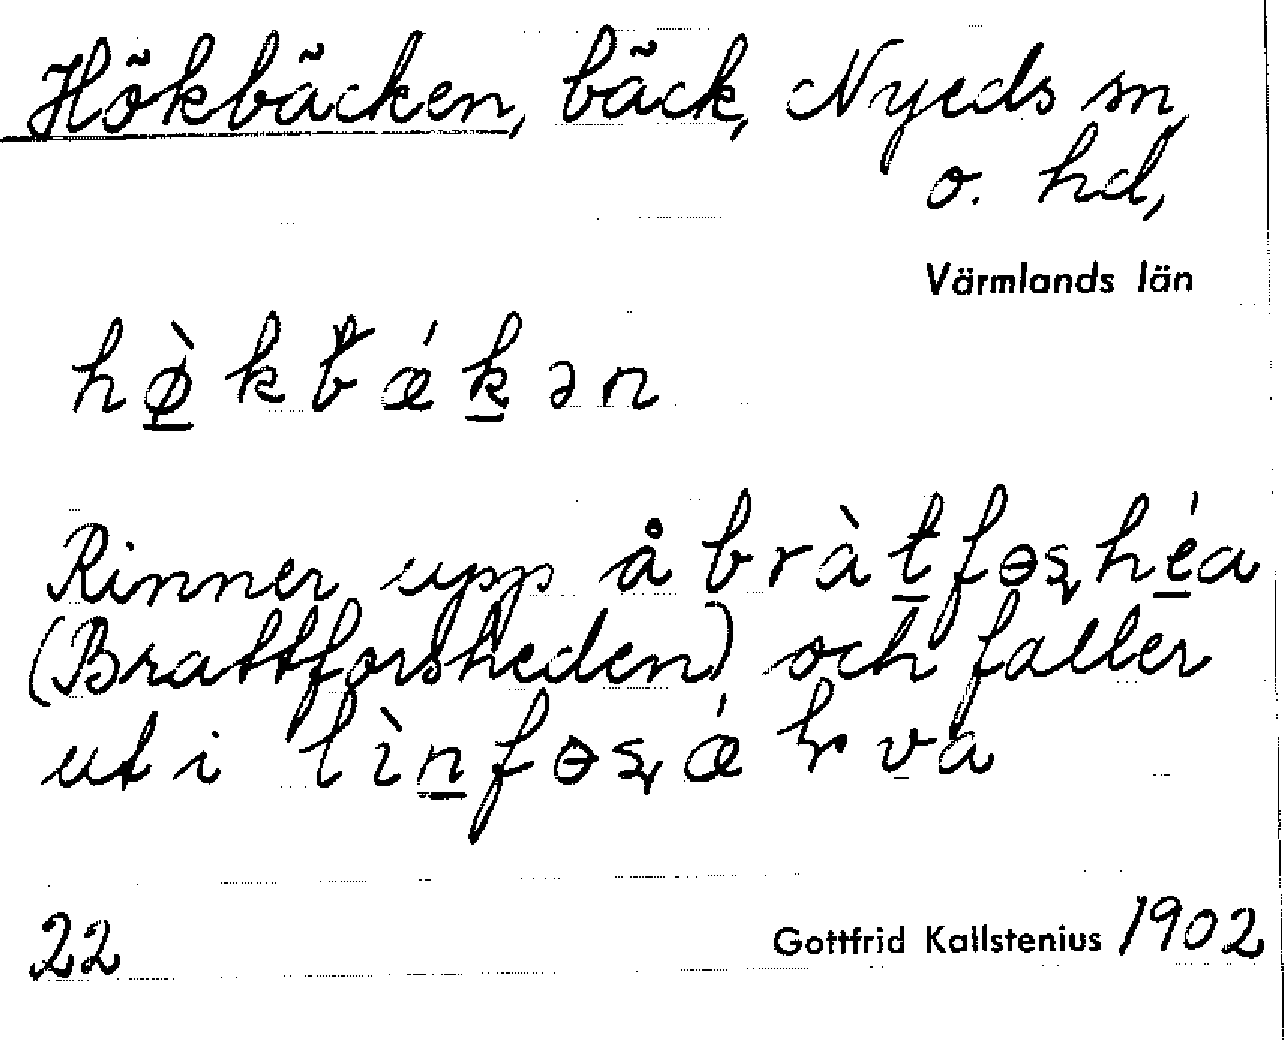 Hökbäcken, bäck, Nyeds sn
o. hd,
Värmlands län
hø̠̀kbǽk̠ən
Rinner upp å bràt̠fɵʂhé̠a
(Brattforsheden) och faller
ut i lìn̠fɵʂǽɽva
22 Gottfrid Kallstenius 1902